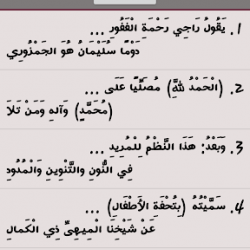 1. يَقُولُ رَاجِي رَحْمَةِ الْغَفُورِ ...
دَوْمًا سُلَيْمَانُ هُوَ الْجَمْزُورِي
2. (الْحَمْدُ لِلَّهِ) مُصَلِّيًا عَلَى ...
(مُحَمَّدٍ) وَآلِهِ وَمَنْ تَلَا
3. وَبَعْدُ: هَذَا النَّظْمُ لِلْمُرِيدِ ...
فِي النُّونِ وَالتَّنْوِينِ وَالْمُدُودِ
4. سَمَّيْتُهُ (بِتُحْفَةِ الْأَطْفَالِ) ...
عَنْ شَيْخِنَا الْمِيهِيِّ ذِي الْكَمَالِ